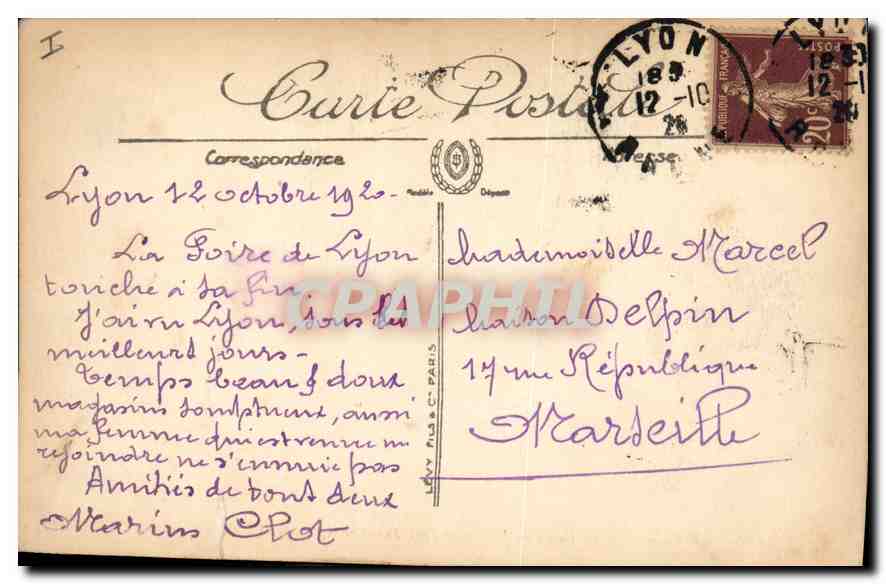 I
Carte Postale
LYON
18 30
12 -10
20
RHONE
LYON
18 30
12 -1
20
POSTES
RÉPUBLIQUE FRANÇAISE
20c
Correspondance
Adresse
Modèle Déposé
Lyon 12 octobre 1920-
La Foire de Lyon
touche à sa fin
J'ai vu Lyon, sous les
meilleurs jours-
Temps beau & doux
magasins somptueux, aussi
ma femme qui est venue me
rejoindre ne s'ennuie pas
Amitiés de tout deux
Marius Clot
LÉVY FILS & Cie PARIS
Mademoiselle Marcel
Maison Delpin
17 rue République
Marseille
CPAPHIL